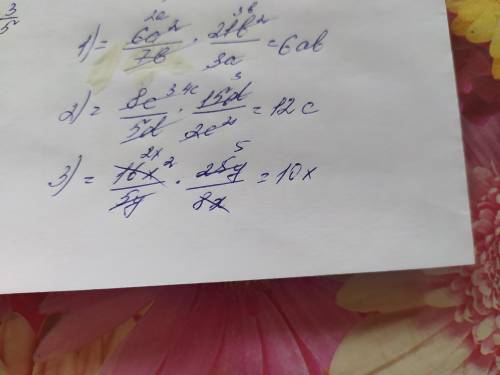 3/5
1) = 6a²/7b · 21b²/3a = 6ab
2) = 8c³/5d · 15d/2c² = 12c
3) = 16x²/5y · 25y/8x = 10x